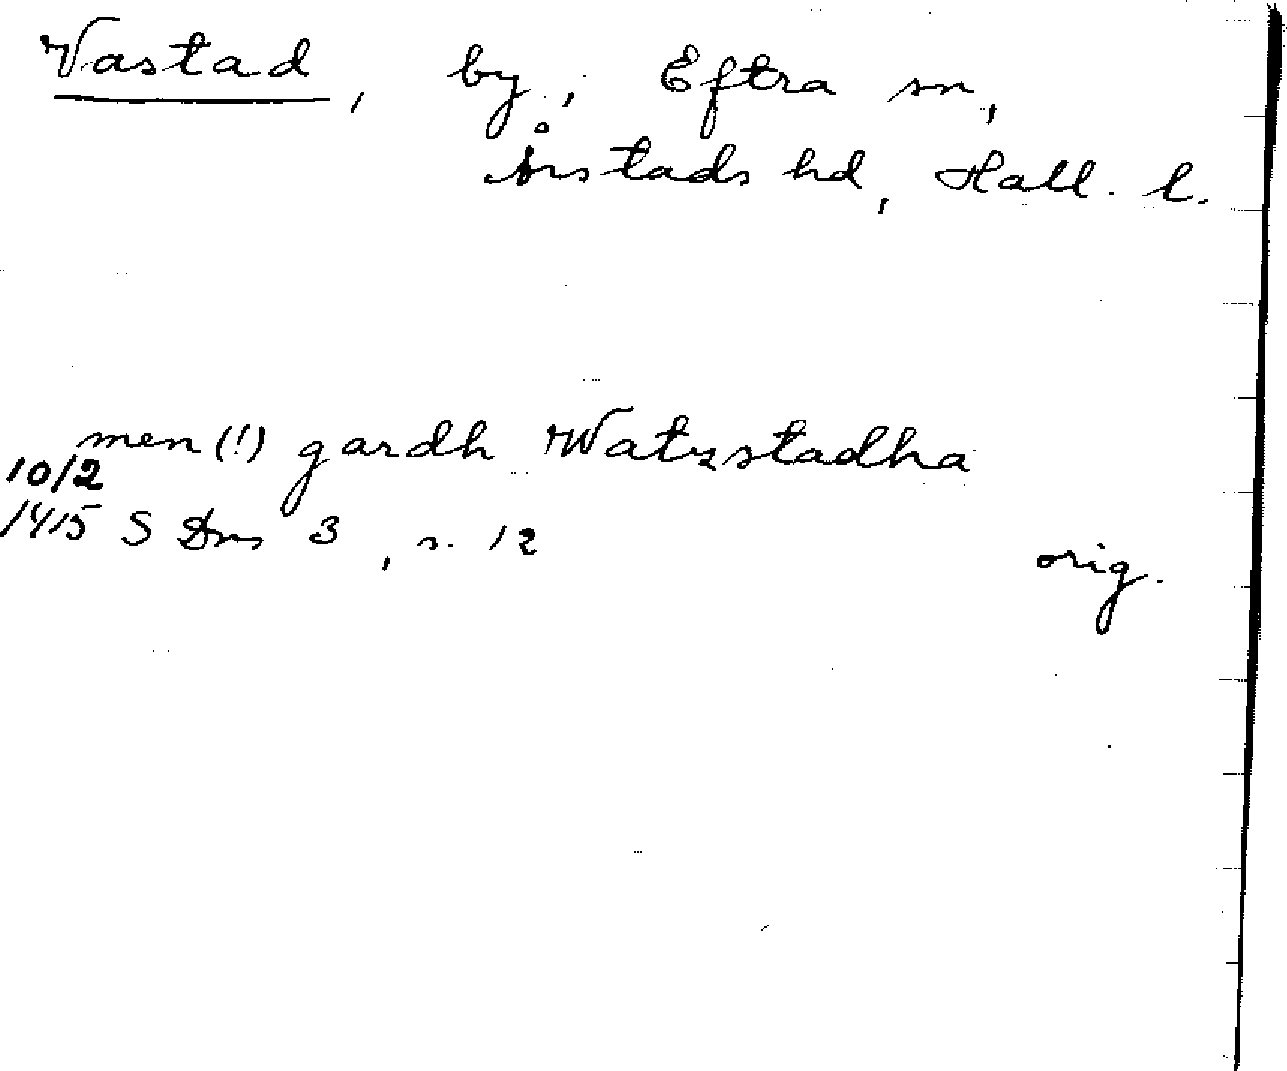 Vastad, by, Eftra sn,
Årstads hd, Hall. l.
men (!) gardh Watzstadha
10/2
1415 S Dns 3, s. 12
orig.